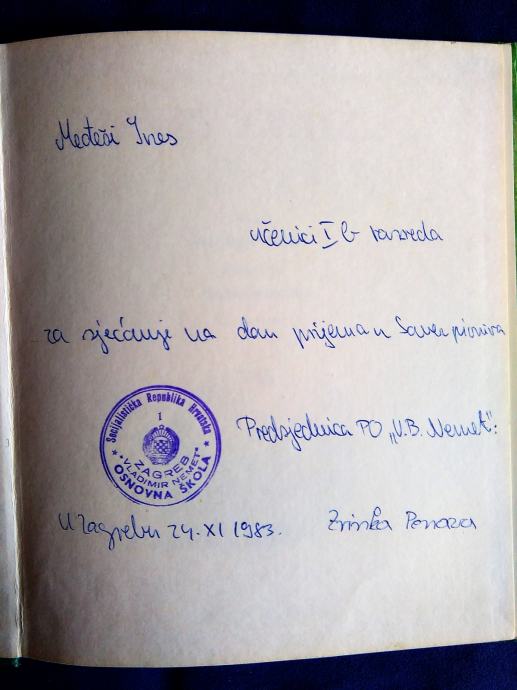 Međeši Ines
učenici I b razreda
za sjećanje na dan prijema u Savez pionira
Predsjednica PO „V.B. Nemet":
Socijalistička Republika Hrvatska
1
ZAGREB
"VLADIMIR NEMET"
* OSNOVNA ŠKOLA *
U Zagrebu 24. XI 1983. Zrinka